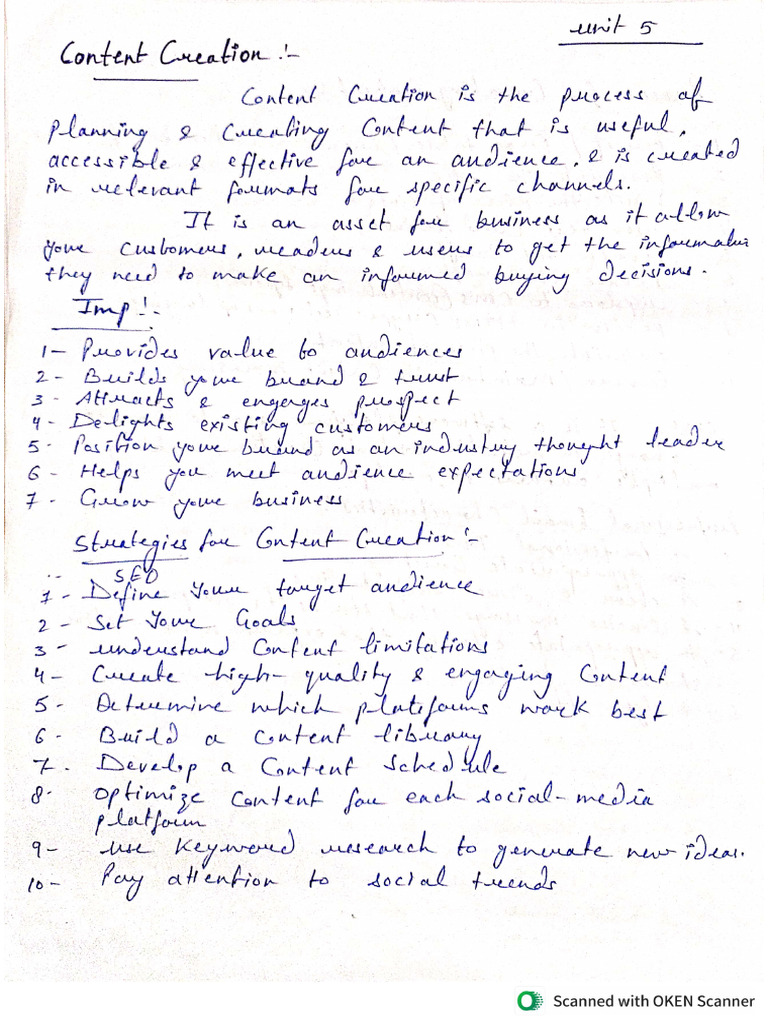 unit 5
Content Creation :-
Content Creation is the process of
Planning & Creating Content that is useful,
accessible & effective for an audience, & is created
in relevant formats for specific channels.
It is an asset for business as it allow
your customers, readers & users to get the information
they need to make an informed buying decisions.
Imp :-
1- Provides value to audiences
2- Builds your brand & trust
3- Attracts & engages prospect
4- Delights existing customers
5- Position your brand as an industry thought leader
6- Helps you meet audience expectations
7- Grow your business
Strategies for Content Creation :-
SEO
1- Define Your target audience
2- Set Your Goals
3- understand Content limitations
4- Create high-quality & engaging Content
5- Determine which platforms work best
6- Build a Content library
7- Develop a Content Schedule
8- optimize Content for each social-media
platform
9- use Keyword research to generate new ideas.
10- Pay attention to social trends
Scanned with OKEN Scanner